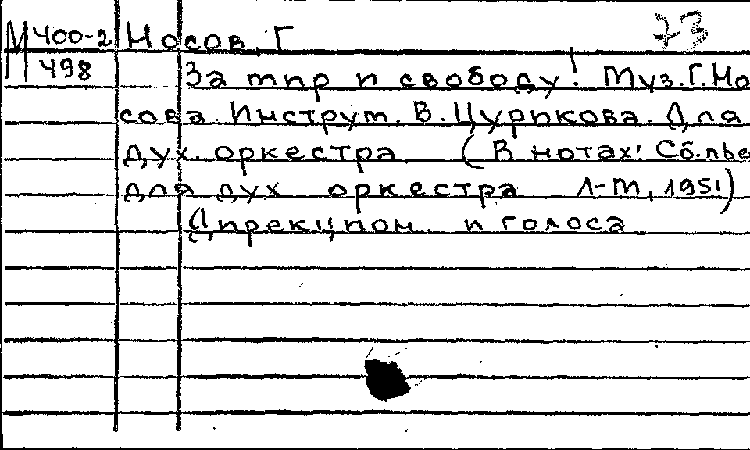 М 400-2 Носов, Г. 73
498 За мир и свободу! Муз. Г. Но
сова. Инструм. В. Цурикова. Для
дух. оркестра. (В нотах: Сб. пье
для дух оркестра Л-М, 1951)
Дирекцион. и голоса.